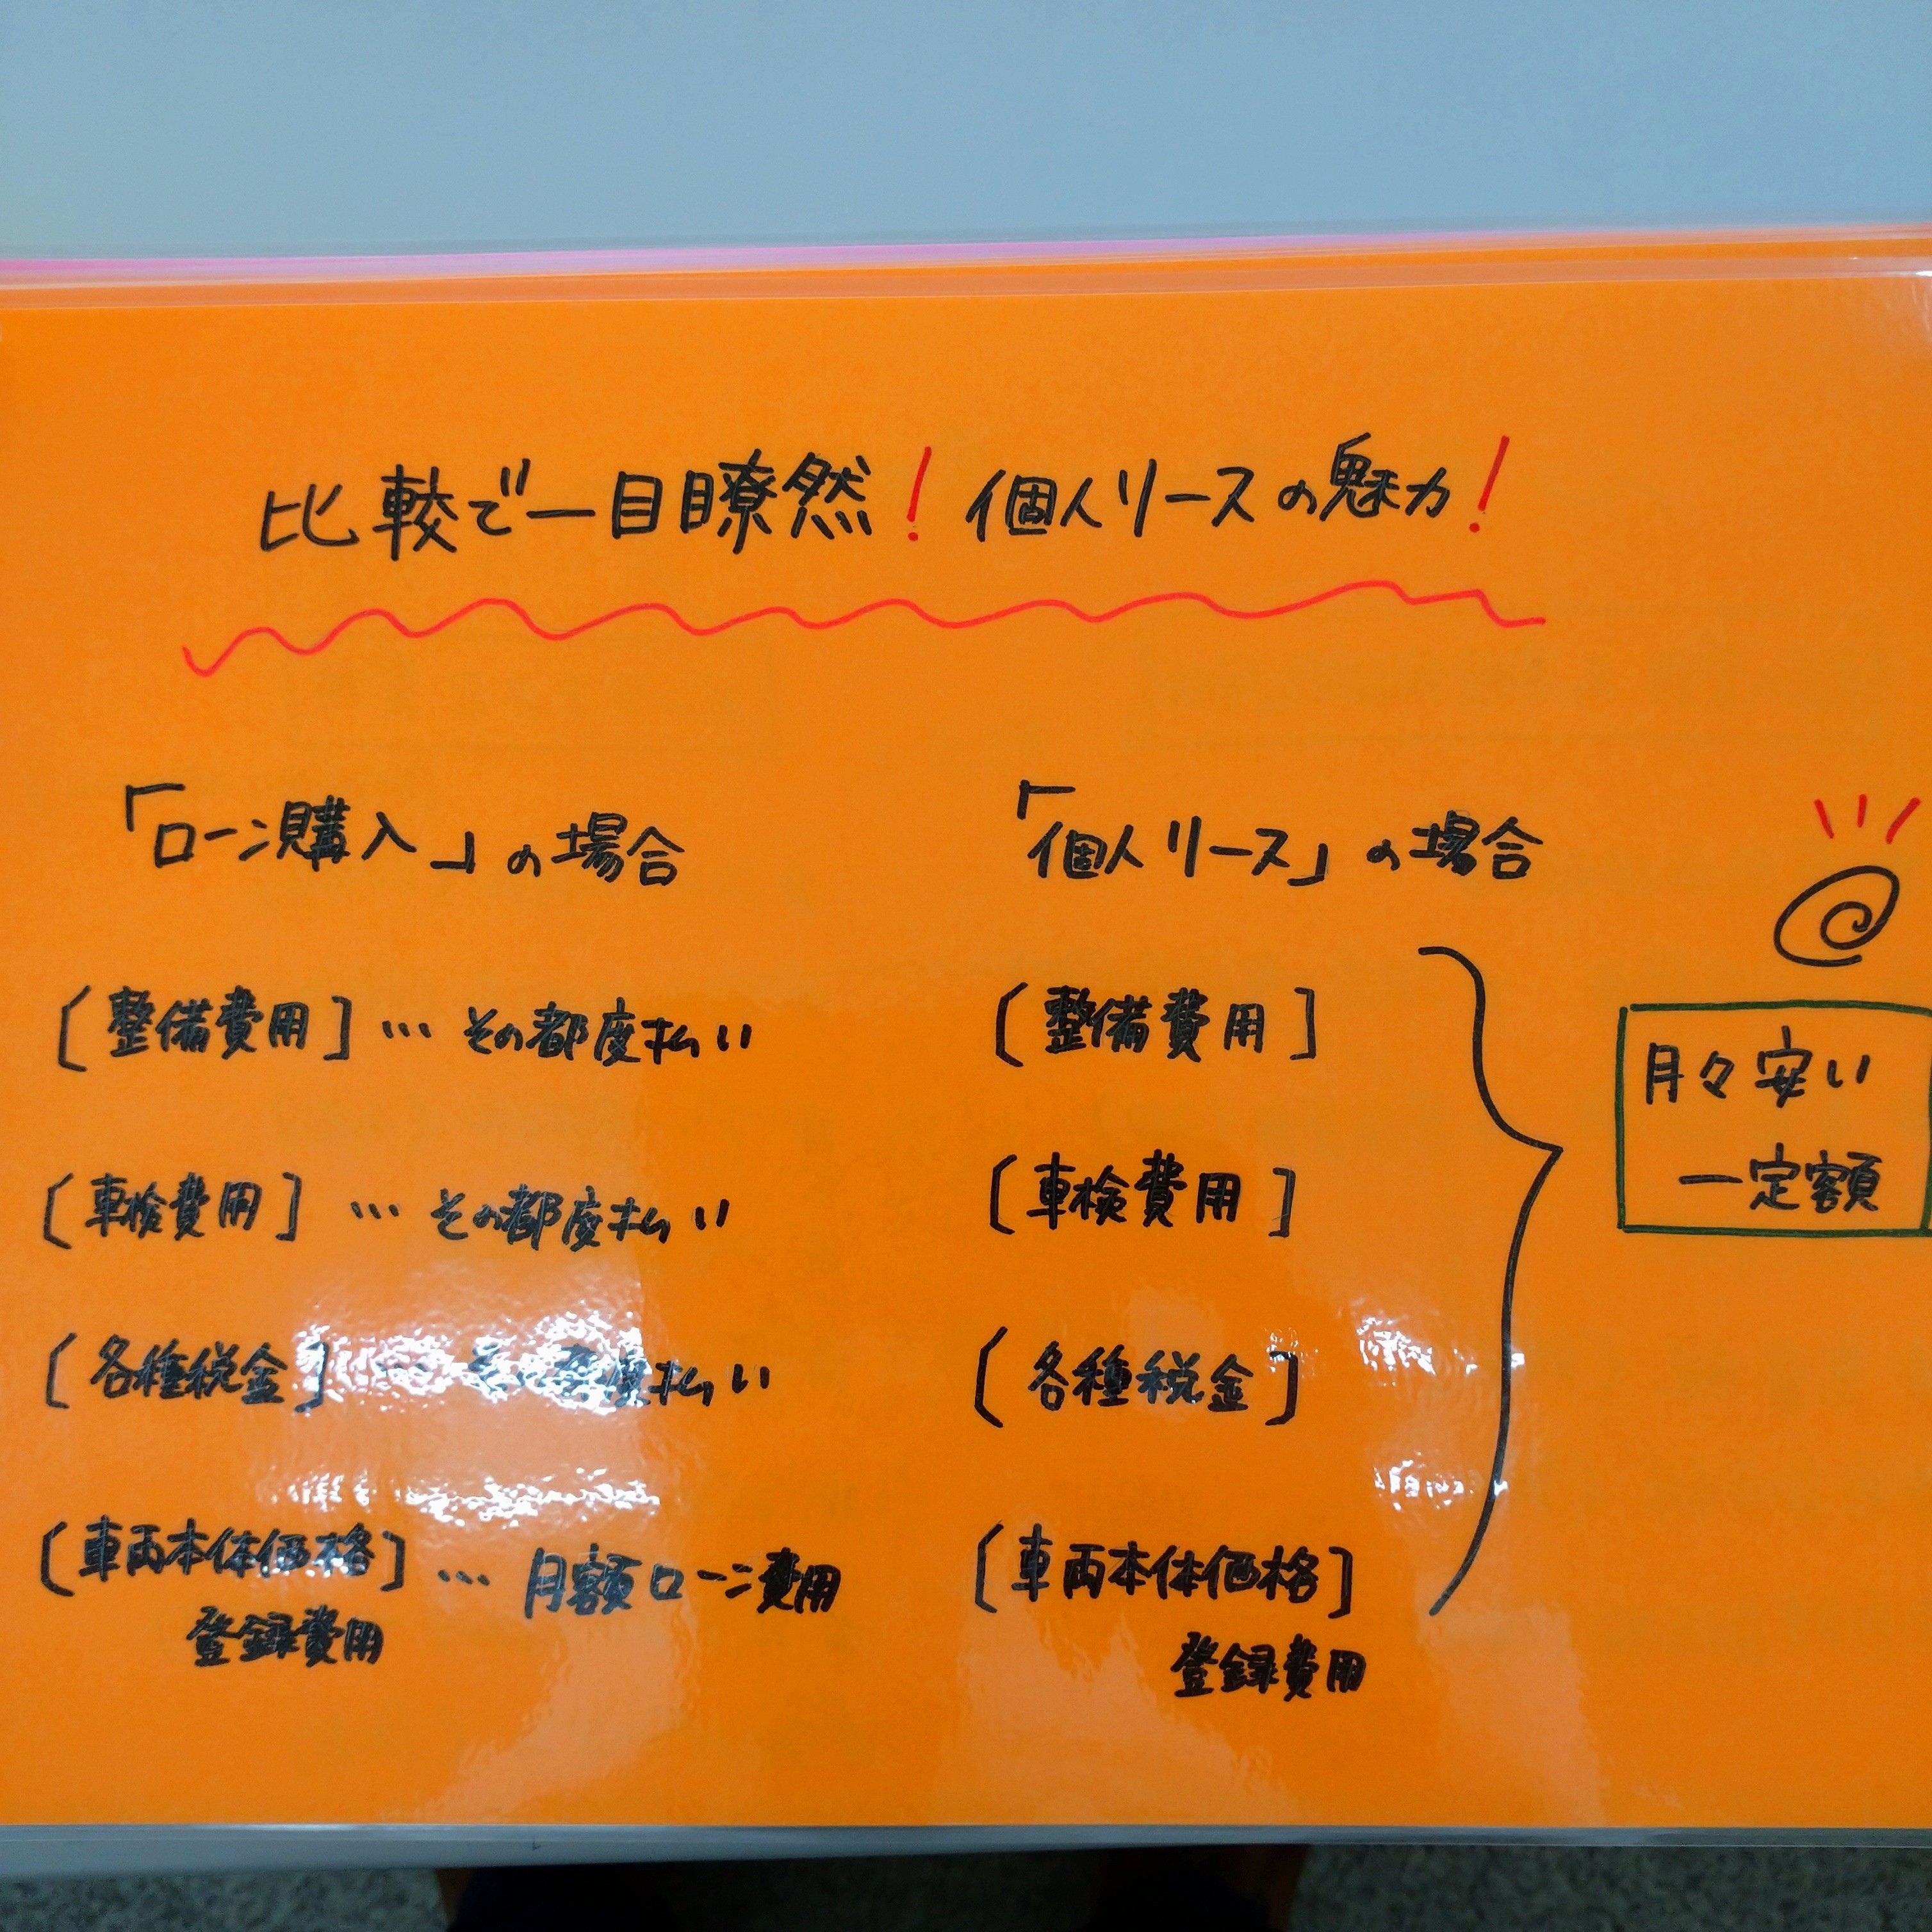 比較で一目瞭然！個人リースの魅力！
「ローン購入」の場合
[整備費用]…その都度払い
[車検費用]…その都度払い
[各種税金]…その都度払い
[車両本体価格]…月額ローン費用
登録費用
「個人リース」の場合
[整備費用]
[車検費用]
[各種税金]
[車両本体価格]
登録費用
月々安い
一定額